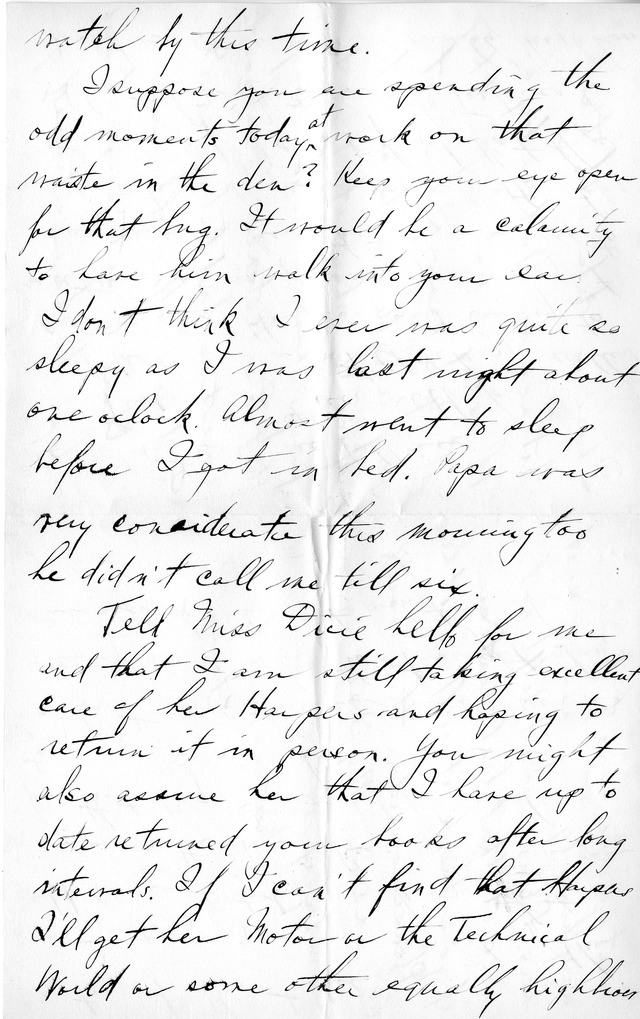 watch by this time.
I suppose you are spending the
odd moments today, at work on that
waiste in the den? Keep your eye open
for that bug. It would be a calamity
to have him walk into your ear.
I don't think I ever was quite so
sleepy as I was last night about
one oclock. Almost went to sleep
before I got in bed. Papa was
very considerate this morning too
he didn't call me till six.
Tell Miss Dicie hello for me
and that I am still taking excellent
care of her Harpers and hoping to
return it in person. You might
also assure her that I have up to
date returned your books after long
intervals. If I can't find that Harpers
I'll get her Motor or the Technical
World or some other equally highbrow